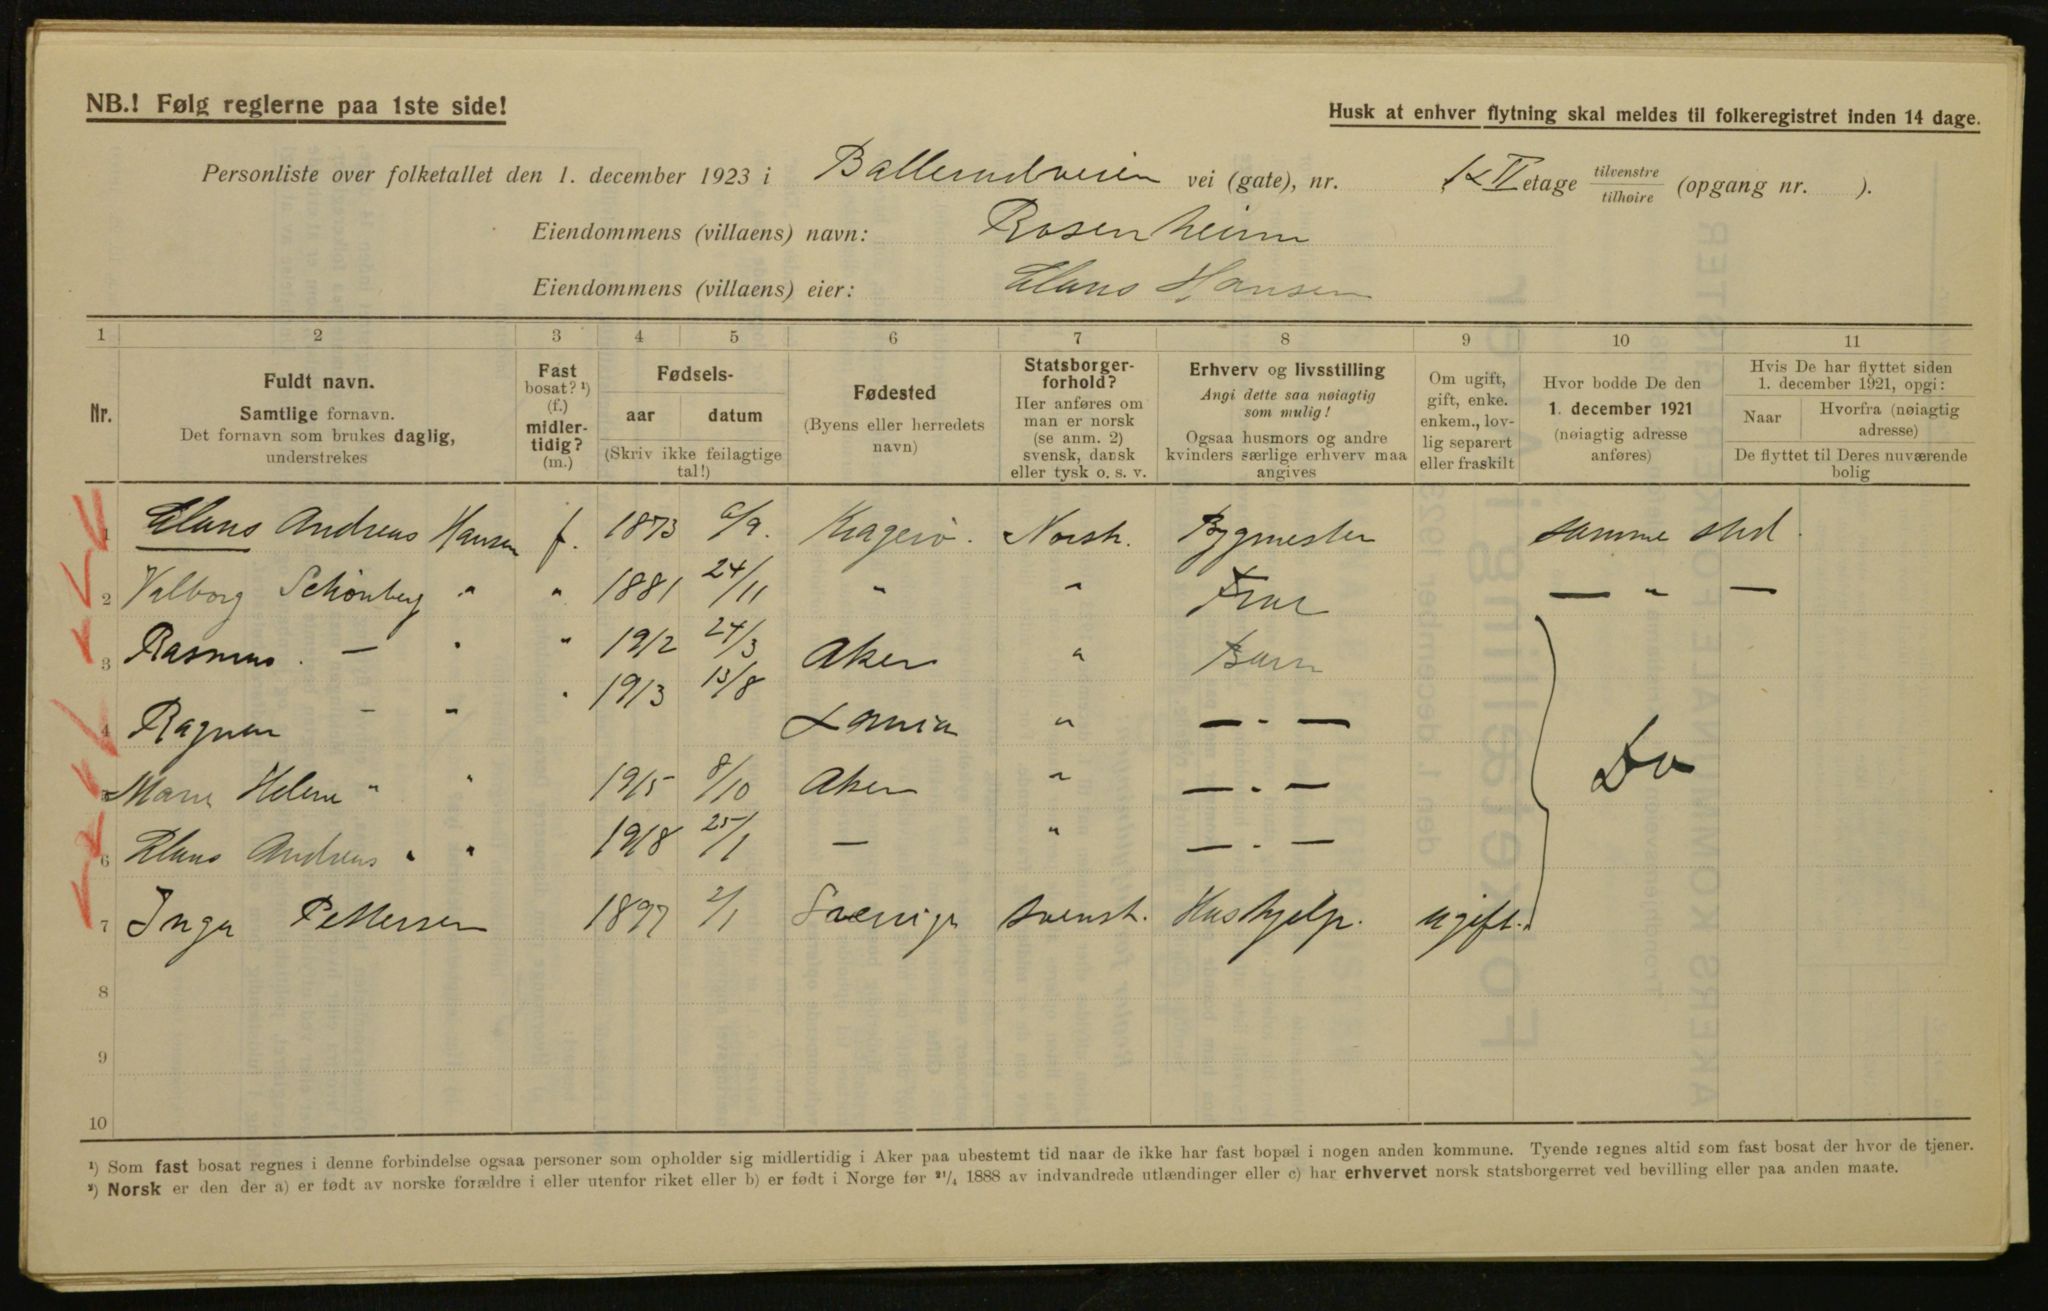 NB.! Følg reglerne paa 1ste side!
Husk at enhver flytning skal meldes til folkeregistret inden 14 dage.
Personliste over folketallet den 1. december 1923 i Ballerudveien vei (gate), nr. 1 & II etage tilvenstre / tilhøire (opgang nr. ).
Eiendommens (villaens) navn: Rosenheim
Eiendommens (villaens) eier: Claus Hansen
1 2 3 4 5 6 7 8 9 10 11
Nr.
Fuldt navn.
Samtlige fornavn.
Det fornavn som brukes daglig,
understrekes
Fast
bosat? ¹)
(f.)
midler-
tidig?
(m.)
Fødsels-
aar datum
(Skriv ikke feilagtige
tal!)
Fødested
(Byens eller herredets
navn)
Statsborger-
forhold?
Her anføres om
man er norsk
(se anm. 2)
svensk, dansk
eller tysk o. s. v.
Erhverv og livsstilling
Angi dette saa nøiagtig
som mulig!
Ogsaa husmors og andre
kvinders særlige erhverv maa
angives
Om ugift,
gift, enke.
enkem., lov-
lig separert
eller fraskilt
Hvor bodde De den
1. december 1921
(nøiagtig adresse
anføres)
Hvis De har flyttet siden
1. december 1921, opgi:
Naar
Hvorfra (nøiagtig
adresse)
De flyttet til Deres nuværende
bolig
1 Claus Andreas Hansen f. 1873 6/9. Kragerö. Norsk. Bygmester samme sted.
2 Valborg Schönberg " " 1881 24/11 " " Frue — " —
3 Rasmus. — " " 1912 24/3 Aker " Barn
4 Ragnar — " " 1913 13/8 " — " —
5 Marie Helene " " 1915 8/10 Aker " — " — Do
6 Claus Andreas " " 1918 25/1 — " — " —
7 Inga Pettersen 1897 2/1 Sverige svensk. Hushjelp. ugift.
8
9
10
¹) Som fast bosat regnes i denne forbindelse ogsaa personer som opholder sig midlertidig i Aker paa ubestemt tid naar de ikke har fast bopæl i nogen anden kommune. Tyende regnes altid som fast bosat der hvor de tjener.
²) Norsk er den der a) er født av norske forældre i eller utenfor riket eller b) er født i Norge før ²¹/₄ 1888 av indvandrede utlændinger eller c) har erhvervet norsk statsborgerret ved bevilling eller paa anden maate.